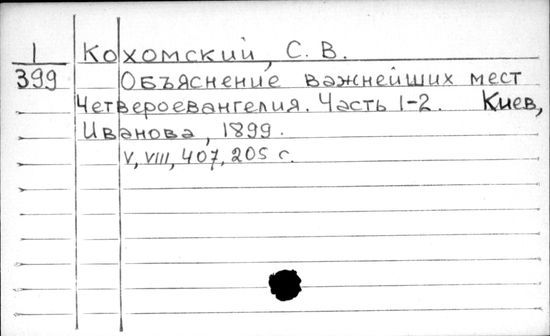 1 Кохомский, С. В.
399 Объяснение важнейших мест
Четвероевангелия. Часть 1-2. Киев,
Иванова, 1899.
V, VIII, 407, 205 с.